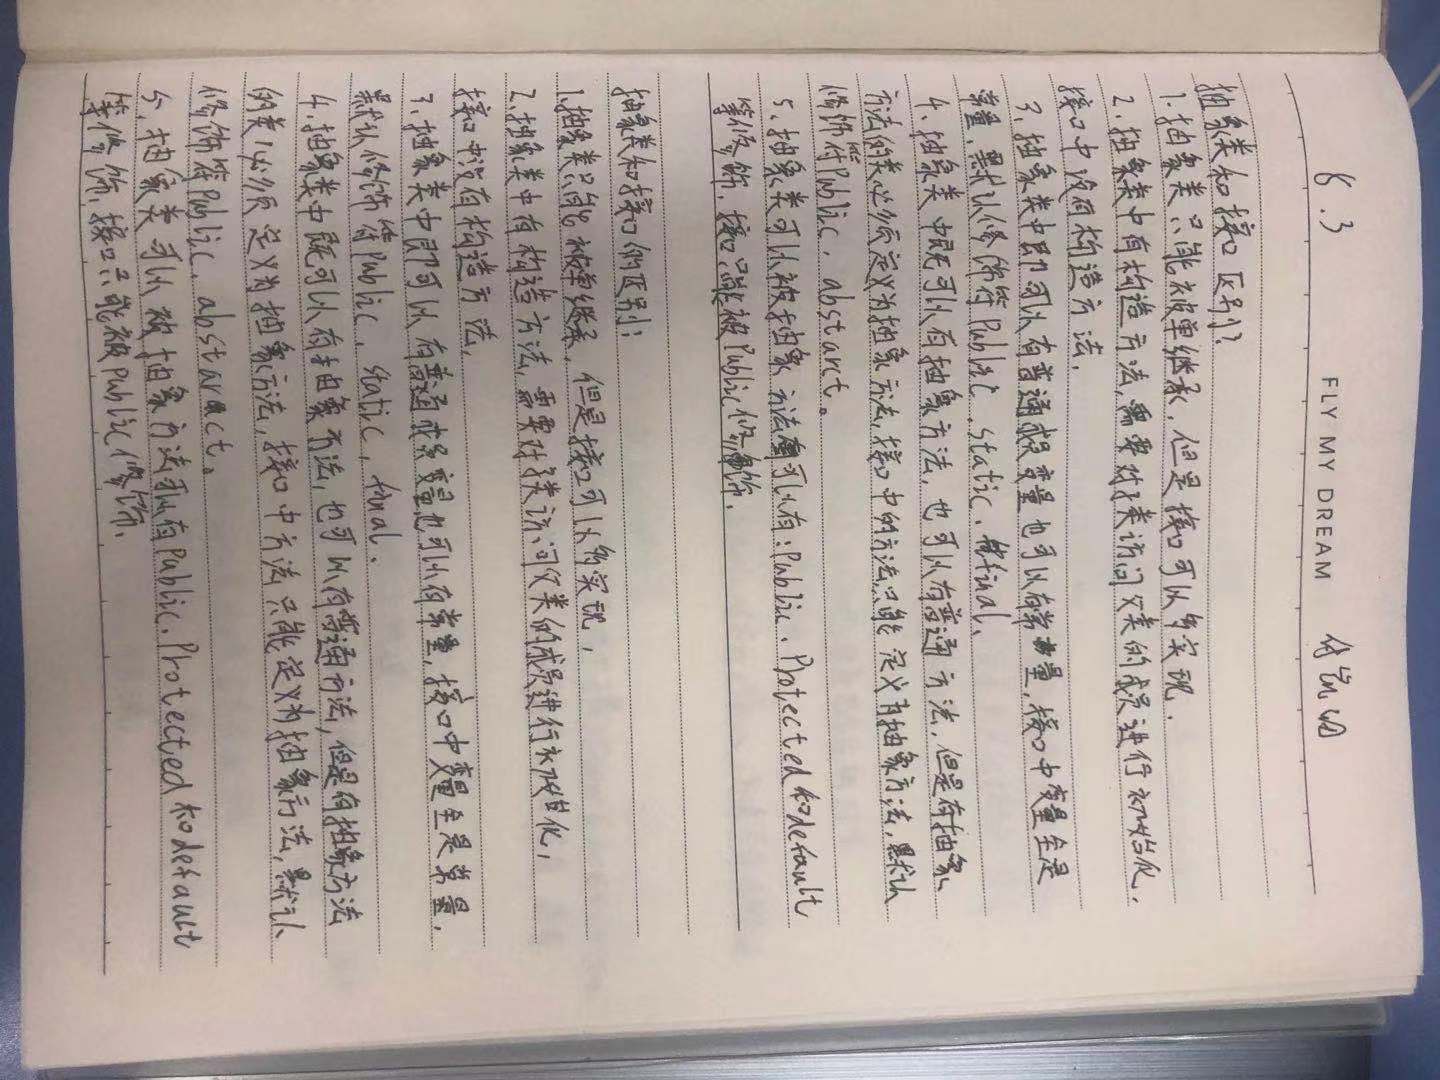 8.3 FLY MY DREAM
抽象类和接口区别?
1.抽象类只能被单继承,但是接口可以多实现.
2.抽象类中有构造方法,需要对类访问父类的成员进行初始化.
接口中没有构造方法.
3.抽象类中即可以有普通成员变量也可以有常量,接口中变量全是
常量,默认修饰符Public.static.final.
4.抽象类中既可以有抽象方法,也可以有普通方法,但是有抽象
方法的类必须定义为抽象方法,接口中的方法只能定义为抽象方法,默认
修饰符Public,abstarct。
5.抽象类可以被抽象方法可以有:Public.Protected和default
等修饰,接口只能被Public修饰.
抽象类和接口的区别:
1.抽象类只能被单继承,但是接口可以多实现,
2.抽象类中有构造方法,需要对类访问父类的成员进行初始化,
接口中没有构造方法,
3.抽象类中即可以有普通成员变量也可以有常量,接口中变量全是常量,
默认修饰符Public,static,final.
4.抽象类中既可以有抽象方法,也可以有普通方法,但是有抽象方法
的类必须定义为抽象方法,接口中方法只能定义为抽象方法,默认
修饰符Public,abstaract。
5.抽象类可以被抽象方法可以有Public.Protected和default
等修饰,接口只能被Public修饰.